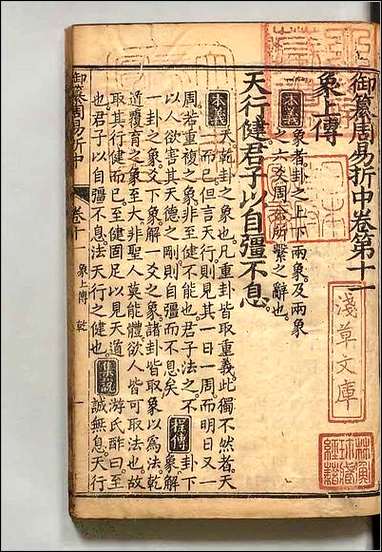 御纂周易折中卷第十一
象上傳
本義
象者卦之上下兩象及兩象
之六爻周公所繫之辭也
天行健君子以自彊不息
本義
天乾卦之象也凡重卦皆取重義此獨不然者天
一而已但言天行則見其一日一周而明日又一
周若重複之象非至健不能也君子法之不
以人欲害其天德之剛則自彊而不息矣
程傳
卦下象解
一卦之象爻下象解一爻之象諸卦皆取象以為法乾
道覆育之象至大非聖人莫能體欲人皆可取法也故
取其行健而已至健固足以見天道
也君子以自彊不息法天行之健也
集說
游氏酢曰至
誠無息天行
御纂周易折中
卷十一
象上傳
乾
一
淺草文庫
林氏